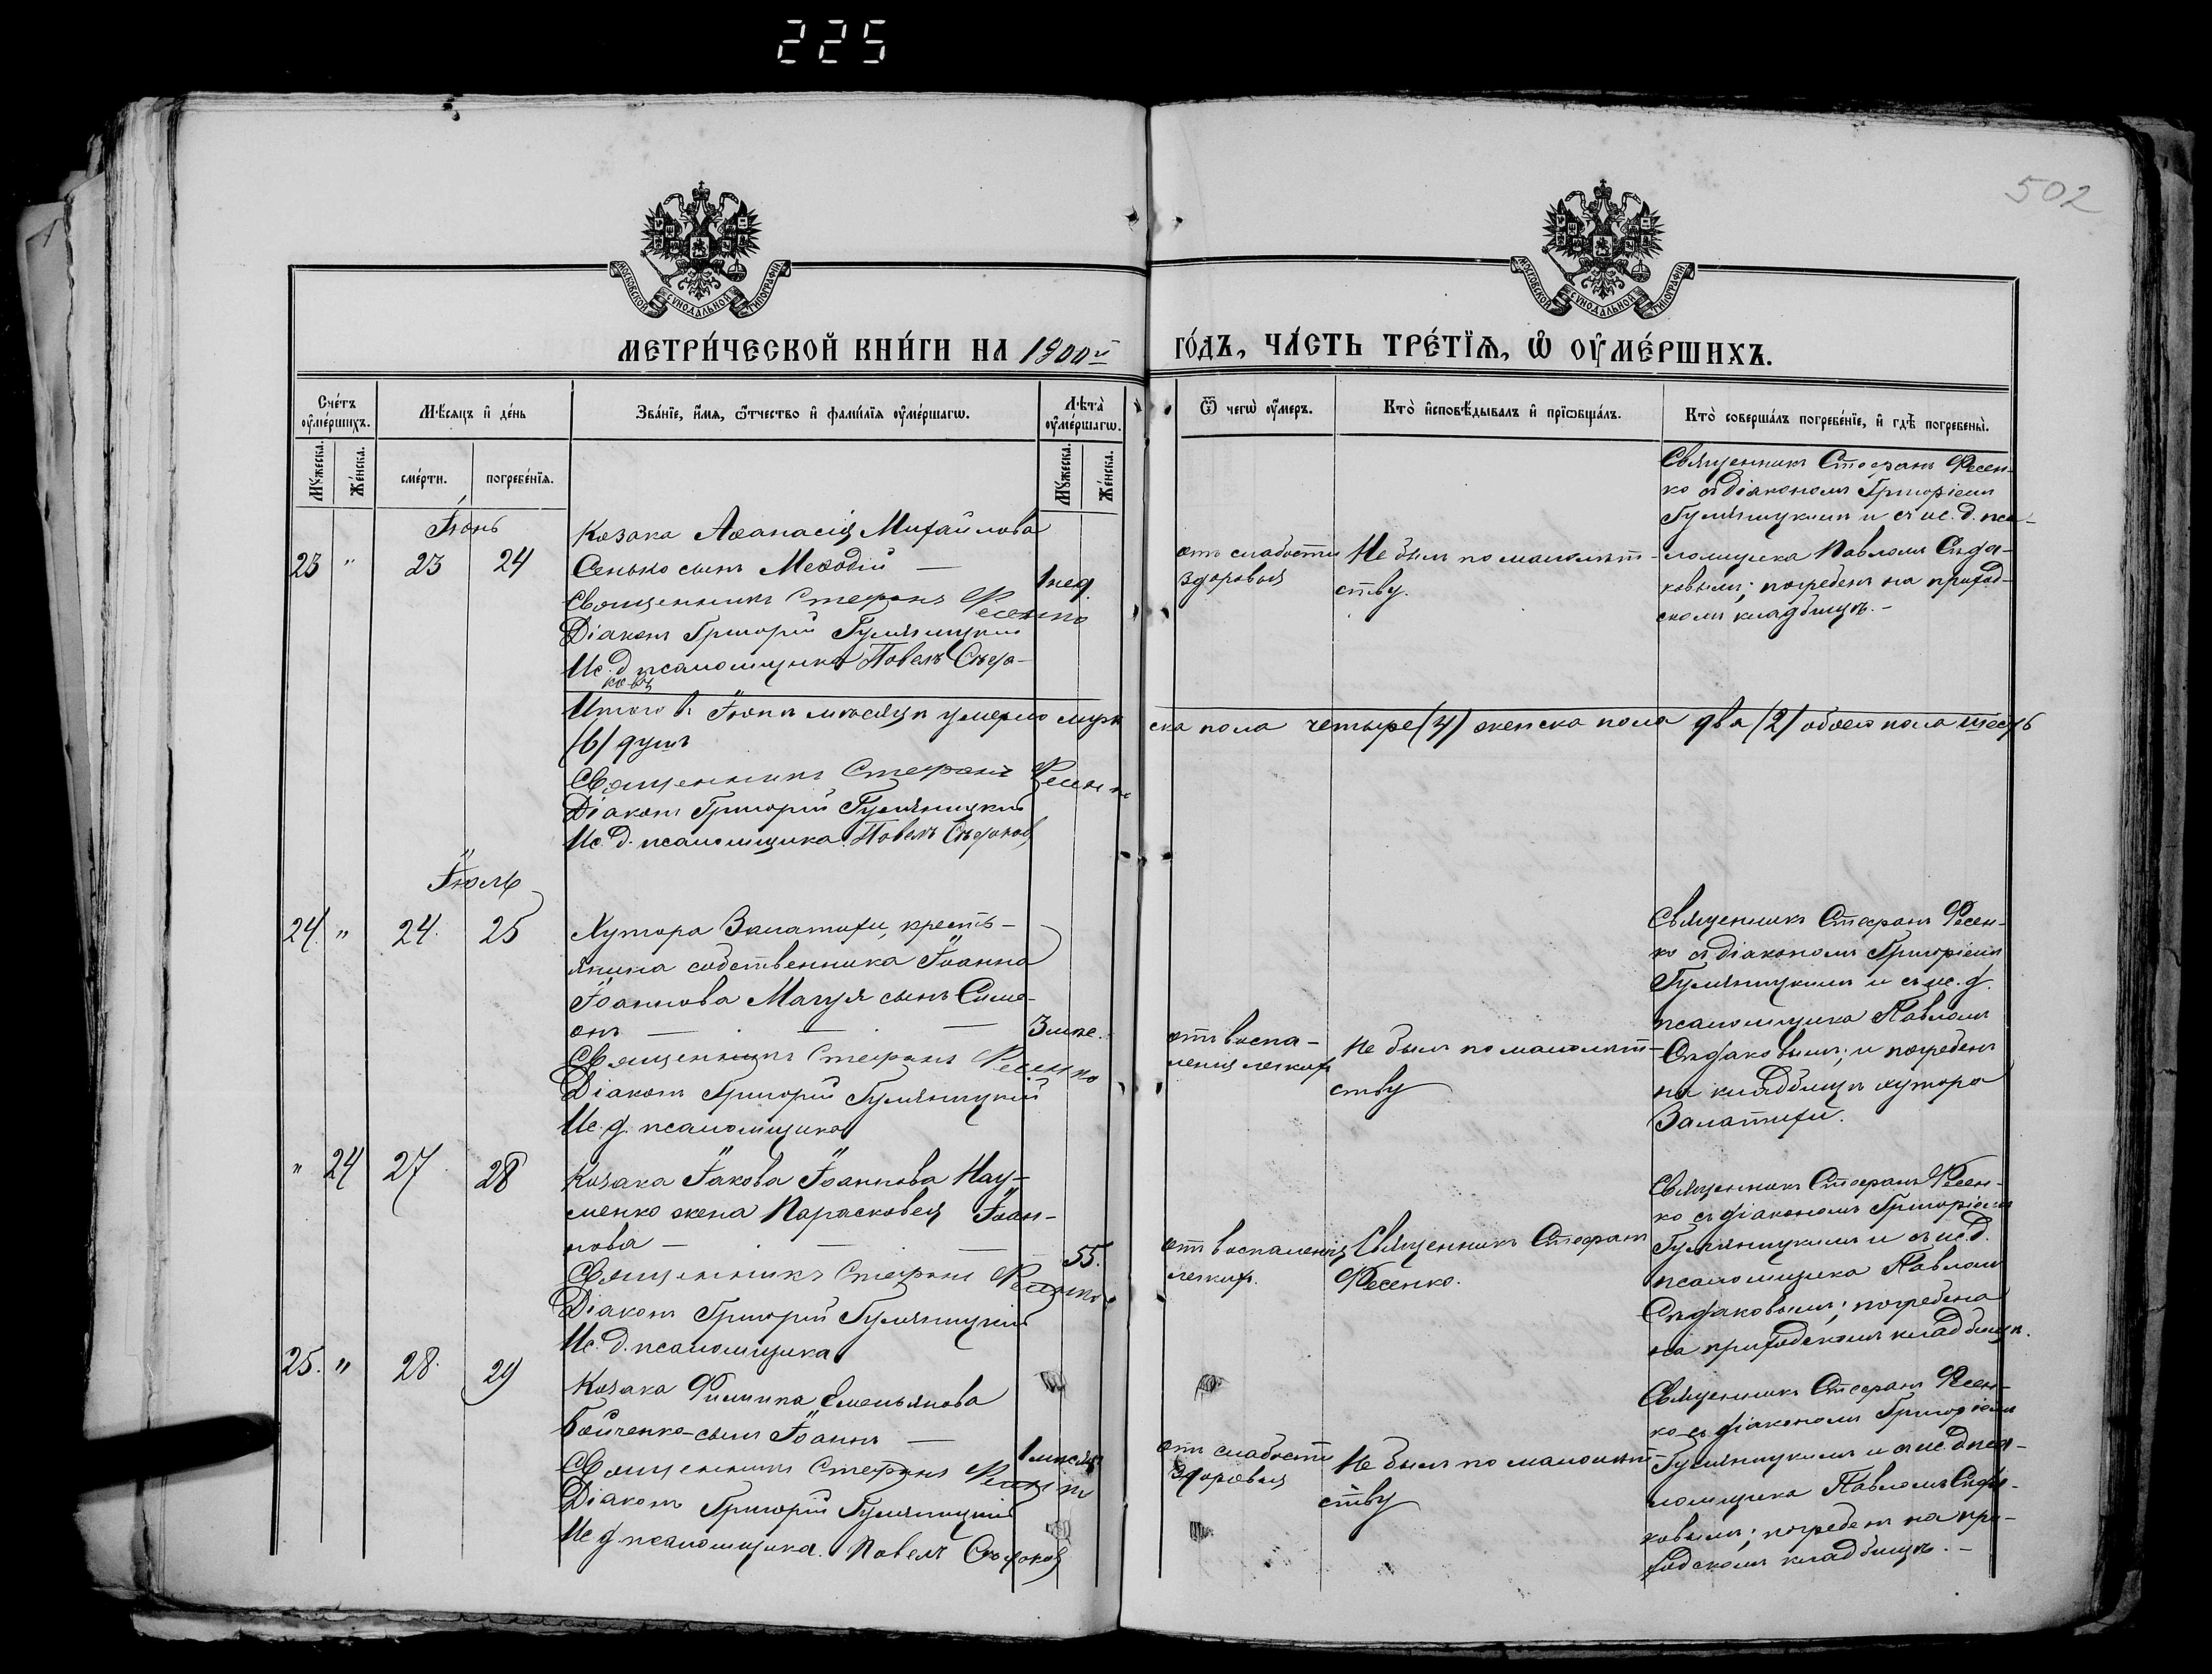 225
502
МОСКОВСКОЙ СУНОДАЛЬНОЙ ТИПОГРАФІИ
МОСКОВСКОЙ СУНОДАЛЬНОЙ ТИПОГРАФІИ
МЕТРИ́ЧЕСКОЙ КНИ́ГИ НА 1900й
ГО́ДЪ, ЧА́СТЬ ТРЕ́ТЇѦ, Ѽ ОУ҆МЕ́РШИХЪ.
Сче́тъ оу҆ме́ршихъ.
Мꙋ́жеска.
Же́нска.
Мѣ́сѧцъ и҆ де́нь
сме́рти.
погребе́нїѧ.
Зва́нїе, и҆́мѧ, ѻ҆́тчество и҆ фами́лїѧ оу҆ме́ршагѡ.
Лѣ̀та оу҆ме́ршагѡ.
Мꙋ́жеска.
Же́нска.
Ѿ чегѡ̀ оу҆́меръ.
Кто̀ и҆сповѣ́дывалъ и҆ прїѡбща́лъ.
Кто̀ соверша́лъ погребе́нїе, и҆ гдѣ̀ погребены̀.
Іюнь
23 " 23 24
Козака Аѳанасія Михайлова
Сенько сынъ Меѳодій —
1 нед.
Священникъ Стефанъ Фесенко
Діаконъ Григорій Гумяницкій
Ис. д. псаломщика Павелъ Сѣда-
ковъ
отъ слабости
здоровья
Не былъ по малолѣт-
ству.
Священникъ Стефанъ Фесен-
ко съ діакономъ Григоріемъ
Гумяницкимъ и съ ис. д. пса-
ломщика Павломъ Сѣда-
ковымъ; погребенъ на приход-
скомъ кладбищѣ. –
Итого въ Іюнѣ мѣсяцѣ умерло муж
ска пола четыре (4) женска пола два (2) обоего пола шесть
(6) душъ
Священникъ Стефанъ Фесенко
Діаконъ Григорій Гумяницкій
Ис. д. псаломщика Павелъ Сѣдаковъ
Іюль
24. " 24. 25
Хутора Залатихи, кресть-
янина собственника Іоанна
Іоаннова Магуя сынъ Симе-
онъ — . — . —
3 мѣс.
Священникъ Стефанъ Фесенко
Діаконъ Григорій Гумяницкій
Ис. д. псаломщика
отъ воспа-
ленія легкихъ
Не былъ по малолѣт-
ству
Священникъ Стефанъ Фесен-
ко съ діакономъ Григоріемъ
Гумяницкимъ и съ ис. д.
псаломщика Павломъ
Сѣдаковымъ; и погребенъ
на кладбищѣ хутора
Залатихи.
" 24 27. 28
Козака Іакова Іоаннова Нау-
менко жена Парасковея Іоан-
нова — . — . —
55.
Священникъ Стефанъ Фесенко
Діаконъ Григорій Гумяницкій
Ис. д. псаломщика
отъ воспаленія
легкихъ.
Священникъ Стефанъ
Фесенко.
Священникъ Стефанъ Фесен-
ко съ діакономъ Григоріемъ
Гумяницкимъ и съ ис. д.
псаломщика Павломъ
Сѣдаковымъ; погребена
на приходскомъ кладбищѣ.
25. " 28. 29
Козака Филиппа Емельянова
Бойченко сынъ Іоаннъ —
1 мѣсяцъ
Священникъ Стефанъ Фесенко
Діаконъ Григорій Гумяницкій
Ис. д. псаломщика. Павелъ Сѣдаковъ
отъ слабости
здоровья
Не былъ по малолѣт-
ству
Священникъ Стефанъ Фесен-
ко съ діакономъ Григоріемъ
Гумяницкимъ и съ ис. д. пса-
ломщика Павломъ Сѣда-
ковымъ; погребенъ на при-
ходскомъ кладбищѣ. –